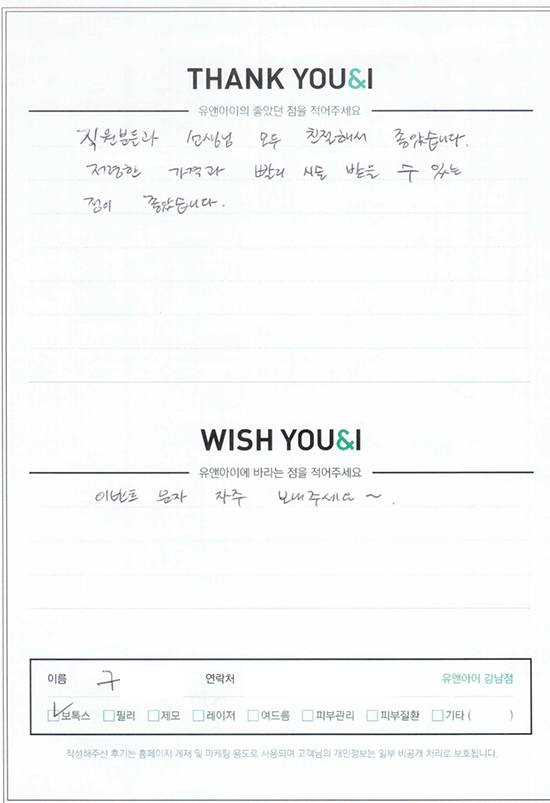 THANK YOU&I
유앤아이의 좋았던 점을 적어주세요
직원분들과 선생님 모두 친절해서 좋았습니다.
저렴한 가격과 빨리 시술 받을 수 있는
점이 좋았습니다.
WISH YOU&I
유앤아이에 바라는 점을 적어주세요
이벤트 문자 자주 보내주세요~.
이름 구 연락처 유앤아이 강남점
보톡스 필러 제모 레이저 여드름 피부관리 피부질환 기타 ( )
작성해주신 후기는 홈페이지 게재 및 마케팅 용도로 사용되며 고객님의 개인정보는 일부 비공개 처리로 보호됩니다.